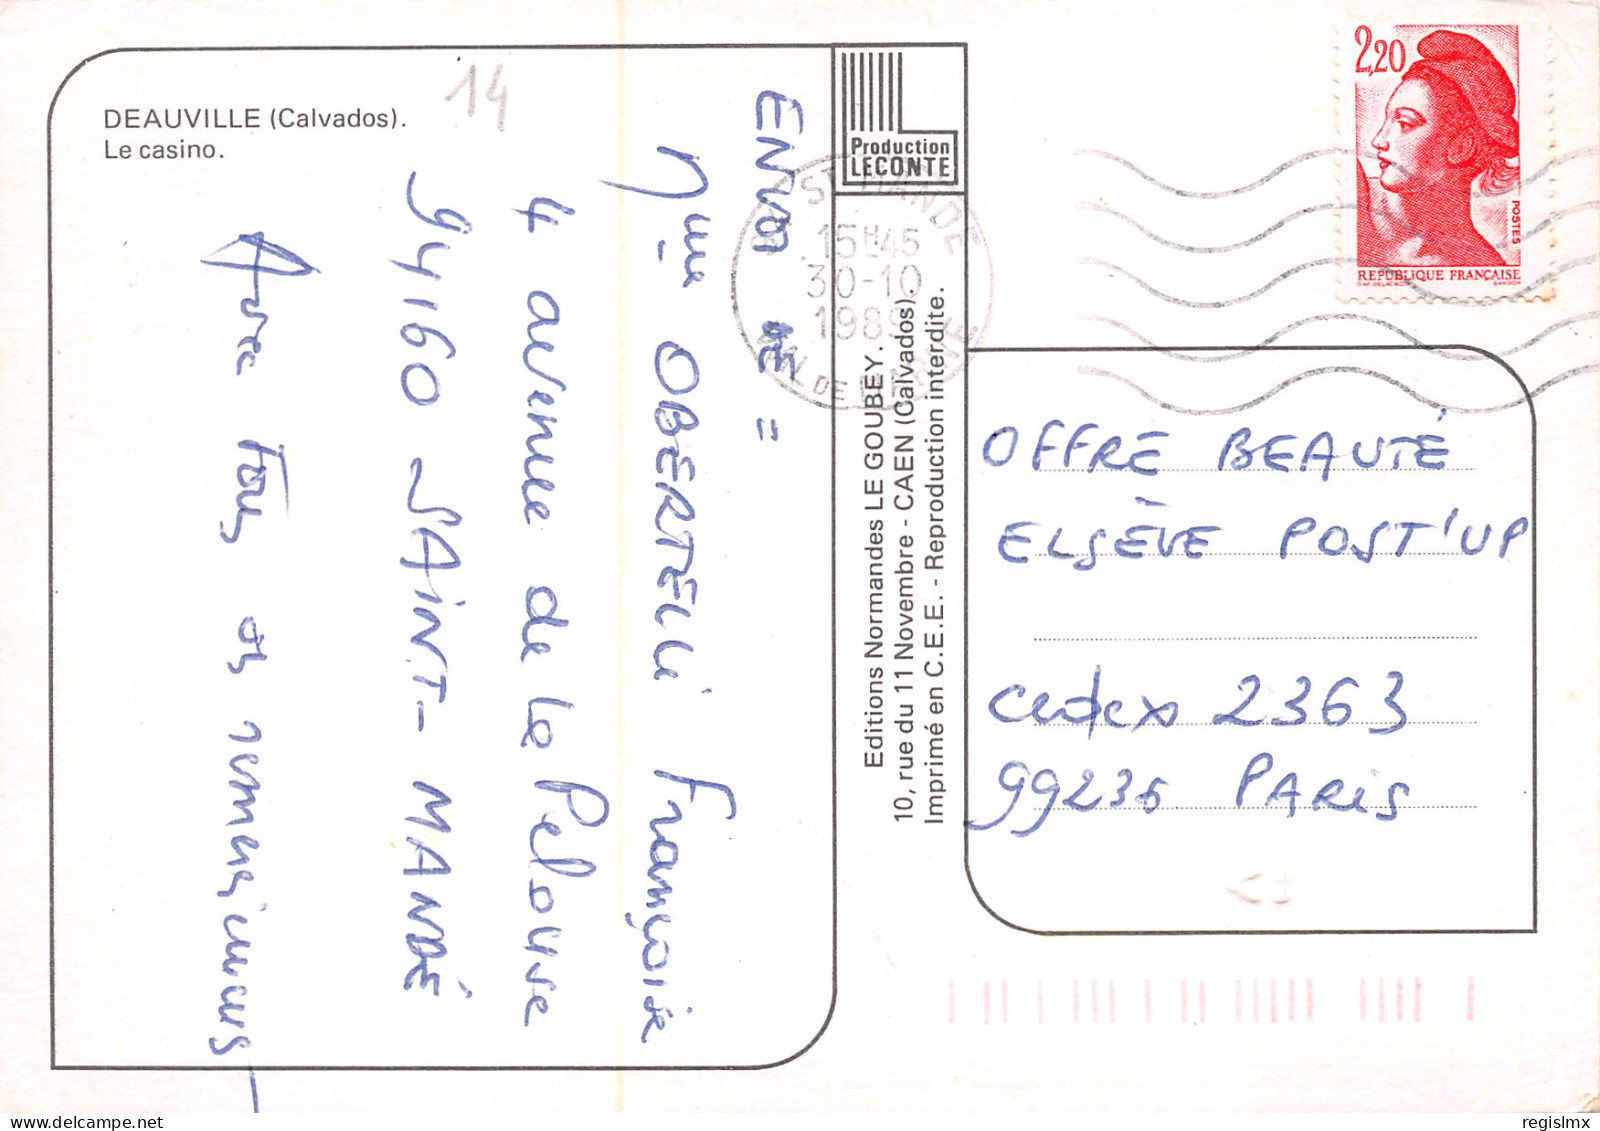 DEAUVILLE (Calvados).
Le casino.
14
ENVOI DE =
Mme OBERTELLI Françoise
4 avenue de la Pelouse
94160 SAINT-MANDÉ
Avec tous mes remerciements
Production
LECONTE
Editions Normandes LE GOUBEY.
10, rue du 11 Novembre - CAEN (Calvados).
Imprimé en C.E.E. - Reproduction interdite.
ST MANDE
15H45
30-10
1989
VAL DE MARNE
2,20
POSTES
REPUBLIQUE FRANÇAISE
D'AP. DELACROIX GANDON
OFFRE BEAUTÉ
ELSÈVE POST'UP
cedex 2363
99236 PARIS
regislmx